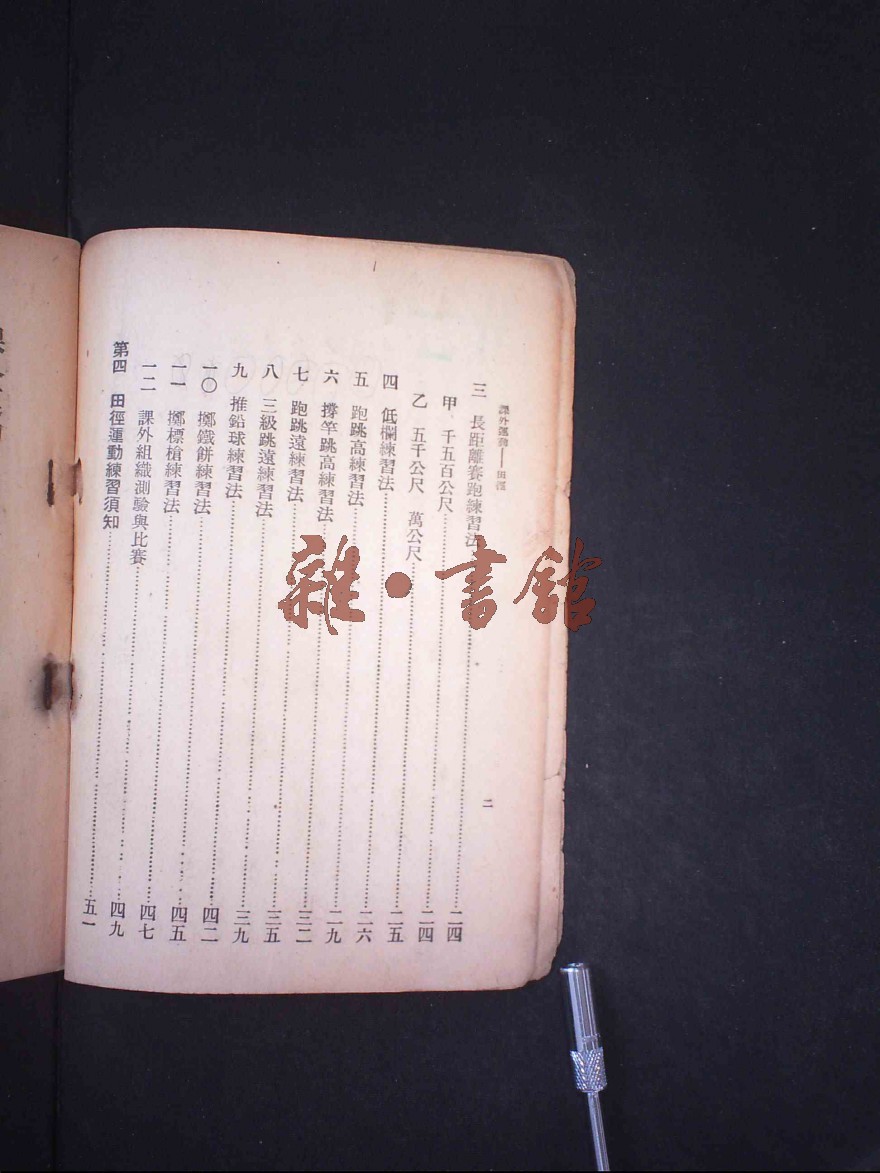 課外運動——田徑
二
三 長距離賽跑練習法……二四
甲 千五百公尺……二四
乙 五千公尺 萬公尺……二五
四 低欄練習法……二六
五 跑跳高練習法……二九
六 撐竿跳高練習法……三二
七 跑跳遠練習法……三五
八 三級跳遠練習法……三九
九 推鉛球練習法……四二
一〇 擲鐵餅練習法……四五
一一 擲標槍練習法……四七
一二 課外組織測驗與比賽……四九
第四 田徑運動練習須知……五一
雜·書館